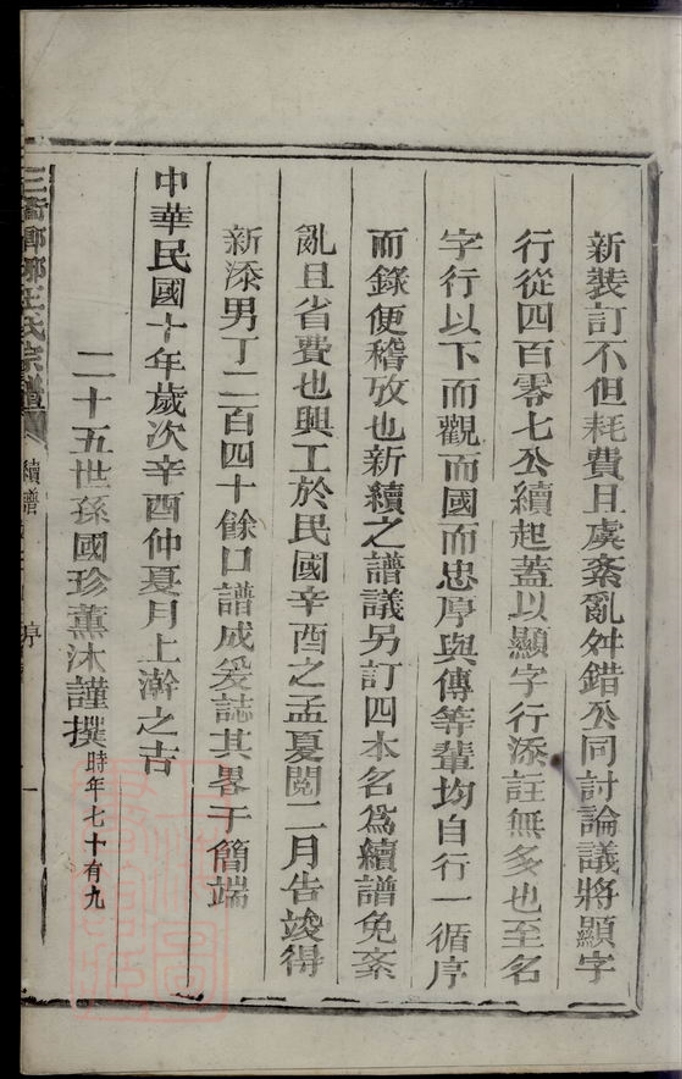 新裝訂不但耗費且虞紊亂舛錯公同討論議將顯字
行從四百零七公續起蓋以顯字行添註無多也至名
字行以下而觀而國而忠厚與傳等輩均自行一循序
而錄便稽攷也新續之譜議另訂四本名爲續譜免紊
亂且省費也興工於民國辛酉之孟夏閱二月告竣得
新添男丁二百四十餘口譜成爰誌其畧于簡端
中華民國十年歲次辛酉仲夏月上澣之吉
二十五世孫國珍薰沐謹撰時年七十有九
王氏宗譜 續譜 序 一
上海圖書館藏